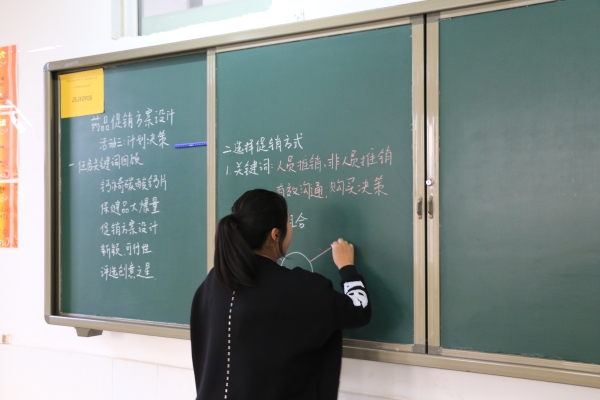 药品促销方案设计
活动二:计划、决策
一 任务关键词回顾
钙尔奇碳酸钙片
保健品大爆量
促销方案设计
新颖、可行性
评选创意之星
二.选择促销方式
1.关键词:人员推销、非人员推销
有效沟通,购买决策
组合